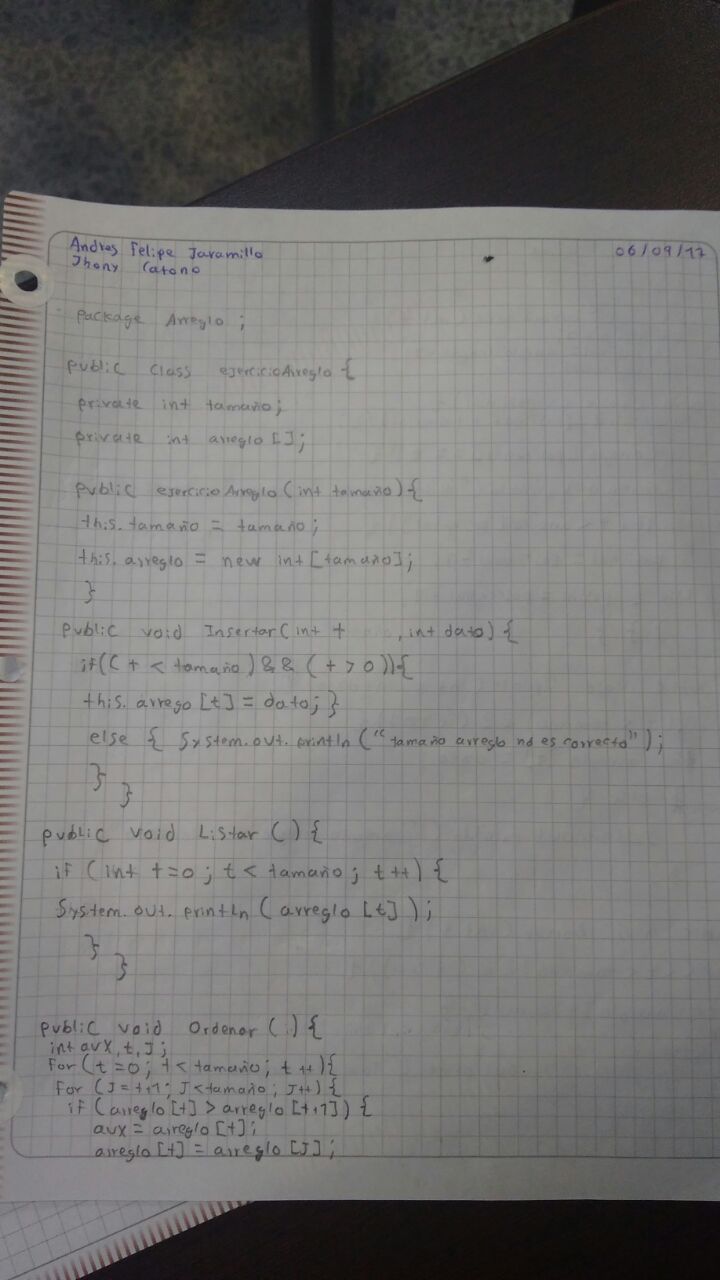 Andres Felipe Jaramillo
Jhony Catono
06/09/17
package Arreglo ;
public class ejercicioArreglo {
private int tamaño;
private int arreglo [];
public ejercicioArreglo (int tamaño) {
this. tamaño = tamaño;
this. arreglo = new int [tamaño];
}
public void Insertar (int t , int dato) {
if(( t < tamaño ) && ( t > 0 )){
this. arrego [t] = dato; }
else { System. out. println ("tamaño arreglo no es correcto");
}
}
public void Listar () {
if (int t=0 ; t < tamaño ; t ++) {
System. out. println ( arreglo [t] ) ;
}
}
public void Ordenar () {
int aux, t, J;
For (t =0 ; t < tamaño; t ++){
For (J= t+1; J<tamaño ; J++) {
if (arreglo [t] > arreglo [t+1]) {
aux = arreglo [t];
arreglo [t] = arreglo [J] ;